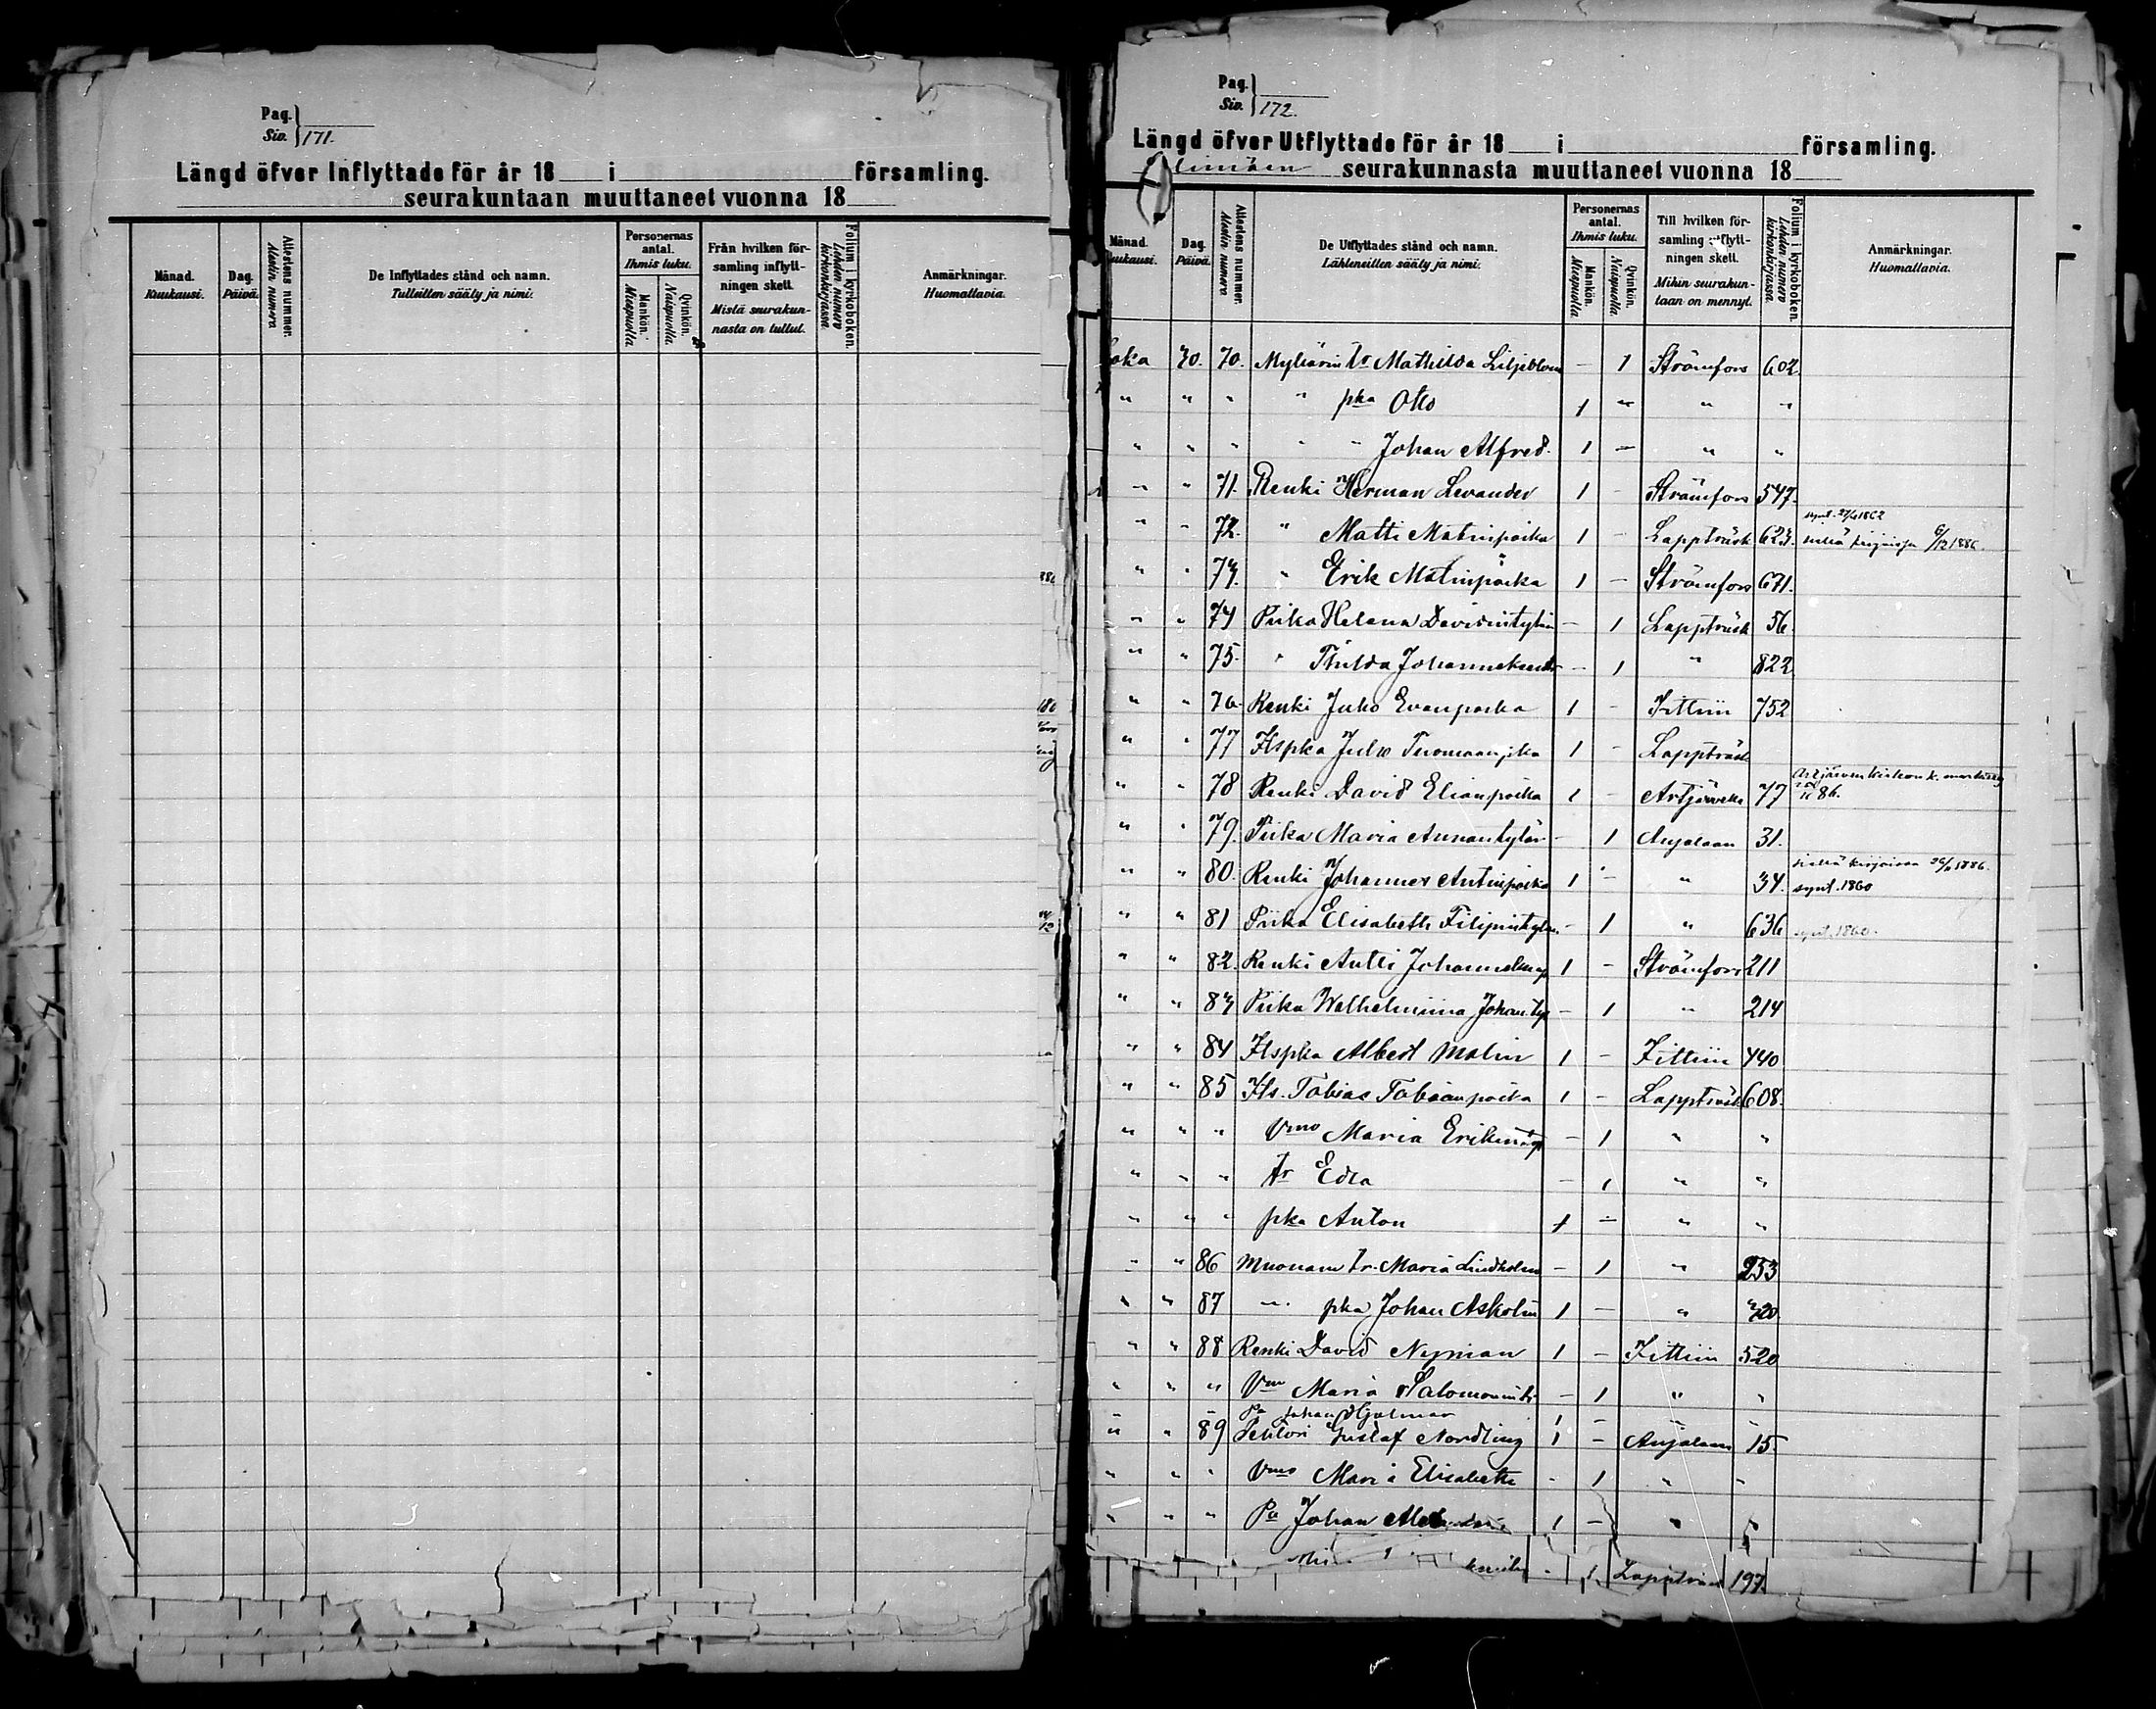 Pag.
Siv. 171.
Längd öfver Inflyttade för år 18 i församling.
seurakuntaan muuttaneet vuonna 18
Månad. Kuukausi.
Dag. Päivä.
Attestens nummer. Alestin numera
De Inflyttades stånd och namn. Tulleitten sääty ja nimi.
Personernas antal. Ihmis luku.
Mankön. Miespuolia.
Qvinkön. Naispuolia.
Från hvilken för-
samling inflytt-
ningen skett.
Mistä seurakun-
nasta on tullut.
Folium i kyrkoboken. Lehden numero kirkonkirjassa.
Anmärkningar. Huomattavia.
Pag.
Siv. 172.
Längd öfver Utflyttade för år 18 i församling.
Elimäen seurakunnasta muuttaneet vuonna 18
Månad. Kuukausi.
Dag. Päivä.
Attestens nummer. Alestin numera
De Utflyttades stånd och namn. Lähteneitten sääty ja nimi.
Personernas antal. Ihmis luku.
Mankön. Miespuolia
Qvinkön. Naispuolia.
Till hvilken för-
samling utflytt-
ningen skett.
Mihin seurakun-
taan on mennyt.
Folium i kyrkoboken. Lehden numero kirkonkirjassa.
Anmärkningar. Huomattavia.
Loka 30. 70. Myllärin tr Mathilda Liljeblom - 1 Strömfors 602.
" " " " pka Otto 1 " " "
" " " " " Johan Alfred. 1 - " "
" " 71. Renki Herman Levander 1 - Strömfors 547.
" " 72. " Matti Matinpoika 1 - Lappträsk 623. synt. 27/4 1862 siellä kirjoissa 6/12 1886.
" " 73. " Erik Matinpoika 1 - Strömfors 671.
" " 74 Piika Helena Davidintytär - 1 Lappträsk 56.
" " 75. " Thilda Johanneksentr - 1 " 822
" " 76. Renki Juho Evanpoika 1 - Iittiin 752
" " 77 Itspka Juho Tuomaanpka 1 - Lappträsk
" " 78 Renki David Elianpoika 1 - Artjärvelle 77
" " 79. Piika Maria Annantytär - 1 Anjalaan 31.
" " 80. Renki Johannes Antinpoika 1 - " 34. siellä kirjoissa 1886. synt. 1860
" " 81 Piika Elisabeth Filipintytär - 1 " 636 synt. 1860.
" " 82. Renki Antti Johanneksenp 1 - Strömfors 211
" " 83 Piika Wilhelmiina Johan.ty - 1 " 214
" " 84 Itspka Albert Malin 1 - Iittiin 440
" " 85 Its. Tobias Tobiaanpoika 1 - Lappträsk 608.
" " " Vmo Maria Erikintyt - 1 " "
" " " tr Edla - 1 " "
" " " pka Anton 1 - " "
" " 86 Muonam tr. Maria Lindholm - 1 " 253
" " 87 " pka Johan Askolin 1 - " 320
" " 88 Renki David Nyman 1 - Iittiin 520
" " " Vmo Maria Salomonintr - 1 " "
" " Pa Johan Hjalmar 1 - " "
" " 89 Lehtori Gustaf Nordling 1 - Anjalaan 15
" " " Vmo Maria Elisabeth - 1 " "
" " " Pa Johan 1 - " "
- 1 Lappträsk 197.